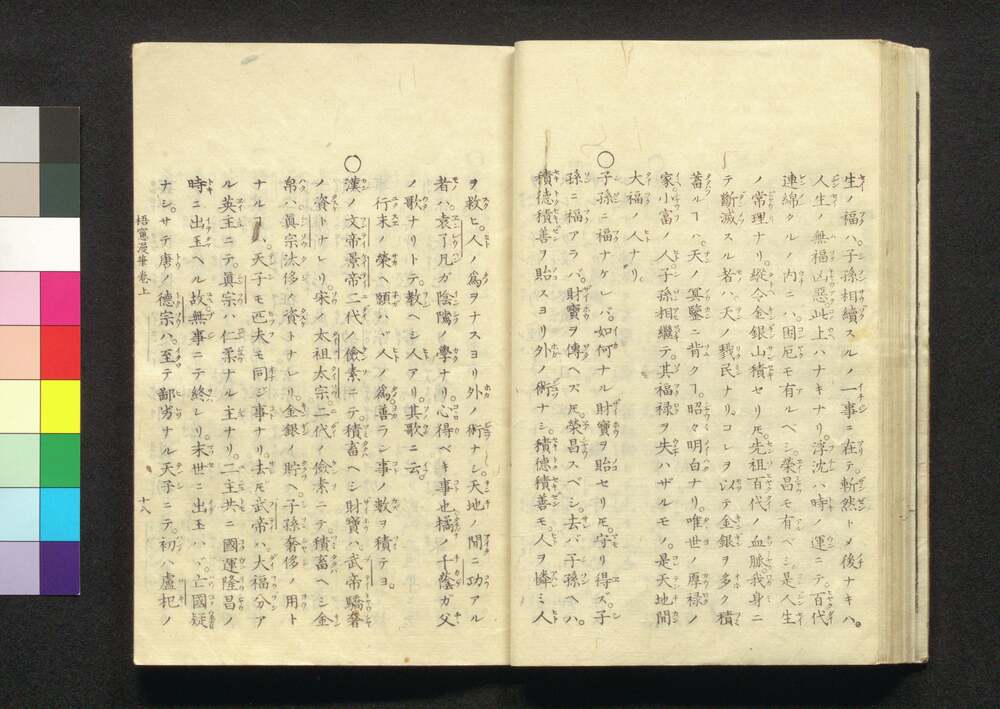 生ノ福ハ。子孫相續スルノ一事ニ在テ。斬然トメ後ナキハ。
人生ノ無福凶惡。此上ハナキナリ。浮沈ハ時ノ運ニテ。百代
連綿タルノ内ニハ。困厄モ有ルベシ。榮昌モ有ベシ。是人生
ノ常理ナリ。縱令金銀山積セリ𪜈。先祖百代ノ血脈我身ニ
テ斷滅スル者ハ。天ノ戮民ナリ。コレヲ以テ金銀ヲ多ク積
蓄ルヿハ。天ノ冥鑒ニ背クヿ。昭々明白ナリ。唯世ノ厚祿ノ
家。小富ノ人。子孫相繼テ。其福祿ヲ失ハザルモノ。是天地間
大福ノ人ナリ。
○子孫ニ福ナケレバ。如何ナル財寶ヲ貽セリ𪜈。守リ得ズ。子
孫ニ福アラバ。財寶ヲ傳ヘズ𪜈。榮昌スベシ。去バ子孫ヘハ。
積德積善ヲ貽スヨリ外ノ術ナシ。積德積善モ。人ヲ憐ミ人
ヲ救ヒ。人ノ爲ヲナスヨリ外ノ術ナシ。天地ノ間ニ功アル
者ハ。袁了凡ガ陰隲ノ學ナリ。心得ベキ事也。橘ノ千蔭ガ父
ノ歌ナリトテ。教ヘシ人アリ。其歌ニ云。
行末ノ榮ヘ願ハバ人ノ爲善ラン事ノ數ヲ積テヨ。
○漢ノ文帝景帝二代ノ儉素ニテ。積畜ヘシ財寶ハ。武帝驕奢
ノ資トナレリ。宋ノ太祖太宗二代ノ儉素ニテ。積畜ヘシ金
帛ハ。眞宗汰侈ノ資トナレリ。金銀ノ貯ヘ。子孫奢侈ノ用ト
ナルヿハ。天子モ匹夫モ同ジ事ナリ。去𪜈武帝ハ。大福分ア
ル英主ニテ。眞宗ハ仁柔ナル主ナリ。二主共ニ國運隆昌ノ
時ニ出玉ヘル故。無事ニテ終レリ。末世ニ出玉ハヾ。亡國疑
ナシ。サテ唐ノ德宗ハ。至テ鄙劣ナル天子ニテ。初ハ盧杞ノ
梧窻漫筆卷上
十八